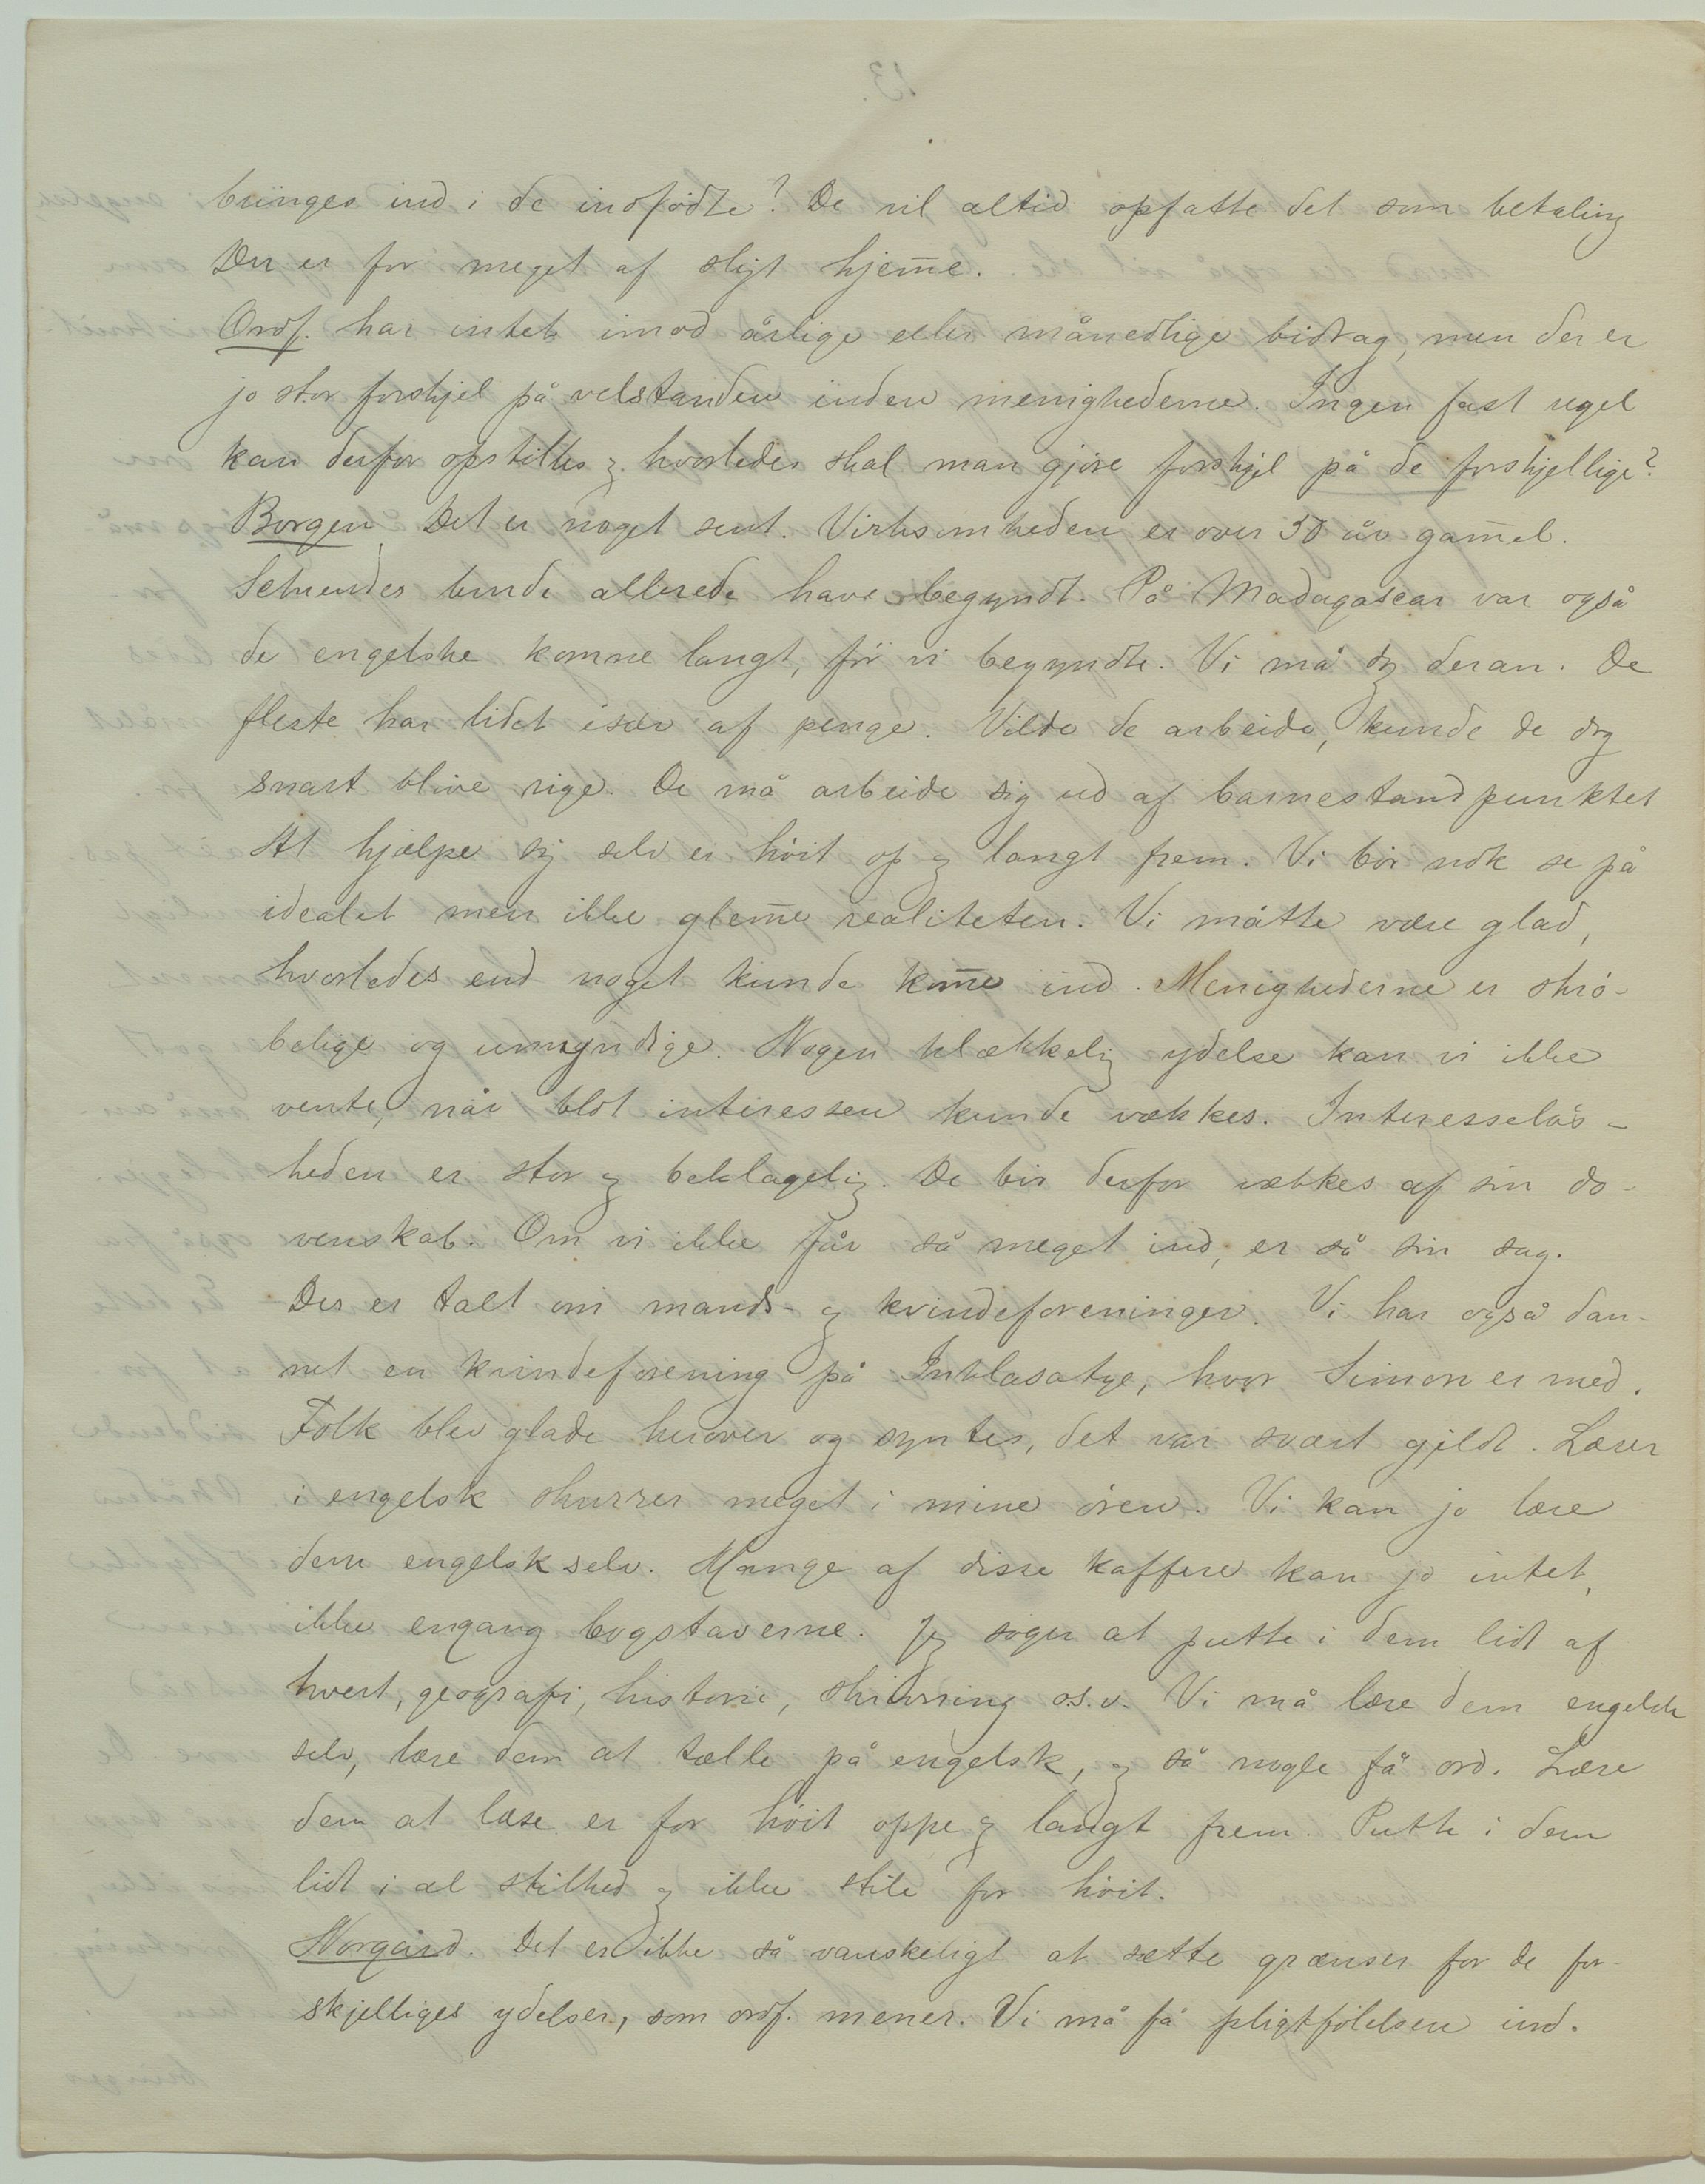 bringes ind i de indfödte? De vil altid opfatte det som betaling
Der er for meget af sligt hjem̅e.
Ordf. har intet imod årlige eller månedlige bidrag, men der er
jo stor forskjel på velstanden inden menighederne. Ingen fast regel
kan derfor opstilles og hvorledes skal man gjöre forskjel på de forskjellige?
Borgen. Det er noget sent. Virksomheden er over 30 år gam̅el.
Schreuder burde allerede have begyndt. På Madagascar var også
de engelske komne langt, för vi begyndte. Vi må dog deran. De
fleste har lidet især af penge. Vilde de arbeide, kunde de dog
snart blive rige. De må arbeide sig ud af barnestandpunktet
At hjælpe sig selv er höit op og langt frem. Vi bör nok se på
idealet men ikke glem̅e realiteten. Vi måtte være glad,
hvorledes end noget kunde kom̅e ind. Menighederne er skrö-
belige og umyndige. Nogen klækkelig ydelse kan vi ikke
vente, når blot interessen kunde vækkes. Interesselös-
heden er stor og beklagelig. De bör derfor vækkes af sin do-
venskab. Om vi ikke får så meget ind, er så sin sag.
Der er talt om mands- og kvindeforeninger. Vi har også dan-
net en kvindeforening på Inhlasatye, hvor Simon er med.
Folk blev glade herover og syntes, det var svært gjildt. Lærer
i engelsk skurrer meget i mine ören. Vi kan jo lære
dem engelsk selv. Mange af disse kaffere kan jo intet,
ikke engang bogstaverne. Jeg söger at putte i dem lidt af
hvert, geografi, historie, skrivning o.s.v. Vi må lære dem engelsk
selv, lære dem at tælle på engelsk, og så nogle få ord. Lære
dem at læse er for höit oppe og langt frem. Putte i dem
lidt i al stilhed og ikke stile for höit.
Norgård. Det er ikke så vanskeligt at sætte grænser for de for-
skjelliges ydelser, som ordf. mener. Vi må få pligtfölelsen ind.